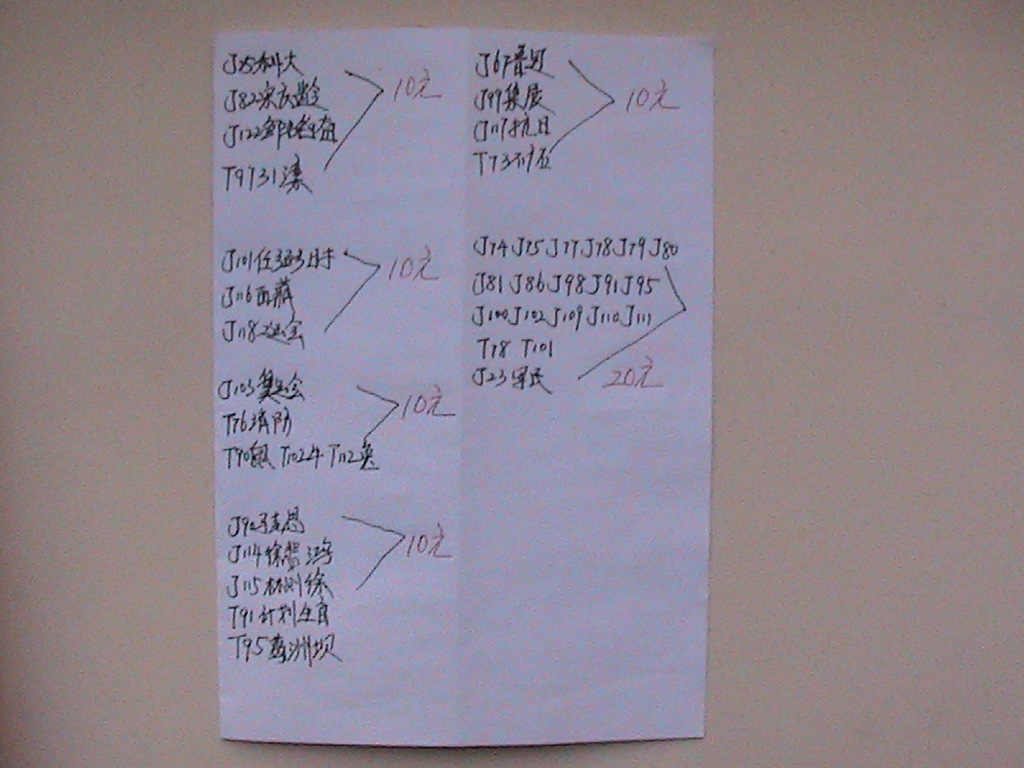 J85科大
10元
J82宋庆龄
J122邹韬奋
T97312案
J101任弼时
10元
J116西藏
J118工运会
J103奥运会
10元
T76消防
T90鼠 T102牛 T112兔
J90马克思
10元
J114徐悲鸿
J115林则徐
T91计划生育
T95葛洲坝
J67普
10元
J99集展
J117抗日
T73
J74 J75 J77 J78 J79 J80
J81 J86 J98 J91 J95
J100 J102 J109 J110 J111
T78 T101
J23军民
20元